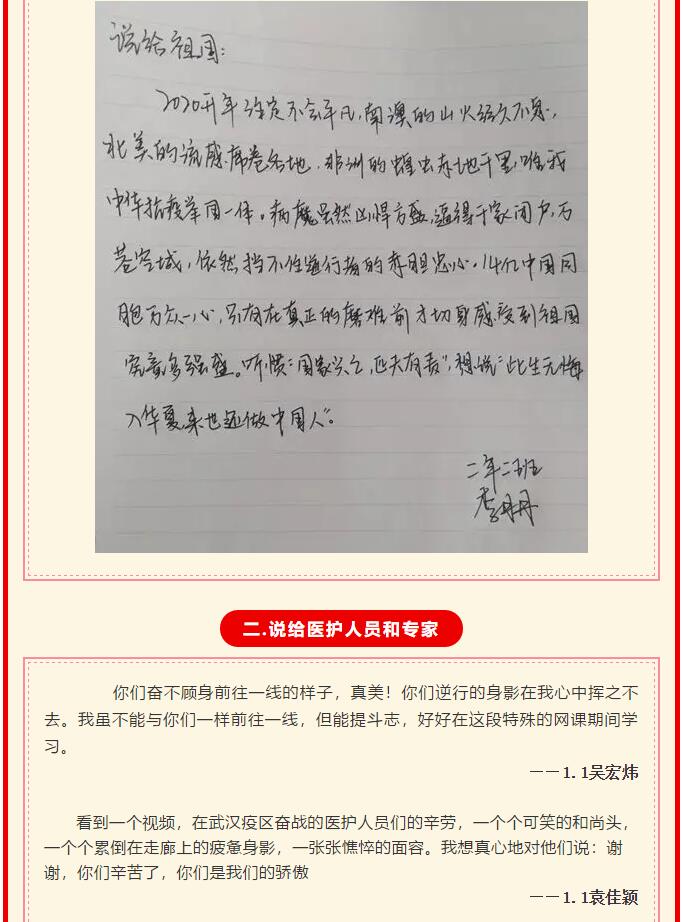 说给祖国：
2020开年注定不会平凡，南澳的山火经久不息，
北美的流感席卷各地，非洲的蝗虫赤地千里，唯我
中华抗疫举国一体。病魔虽然凶悍方盛，逼得千家闭户，万
巷空城，依然挡不住逆行者的赤胆忠心，14亿中国同
胞万众一心，只有在真正的磨难前才切身感受到祖国
究竟多强盛。听惯："国家兴亡，匹夫有责"，想说："此生无悔
入华夏，来世还做中国人"。
二年二班
李丹丹
二.说给医护人员和专家
你们奋不顾身前往一线的样子，真美！你们逆行的身影在我心中挥之不
去。我虽不能与你们一样前往一线，但能提斗志，好好在这段特殊的网课期间学
习。
——1.1吴宏炜
看到一个视频，在武汉疫区奋战的医护人员们的辛劳，一个个可笑的和尚头，
一个个累倒在走廊上的疲惫身影，一张张憔悴的面容。我想真心地对他们说：谢
谢，你们辛苦了，你们是我们的骄傲
——1.1袁佳颖